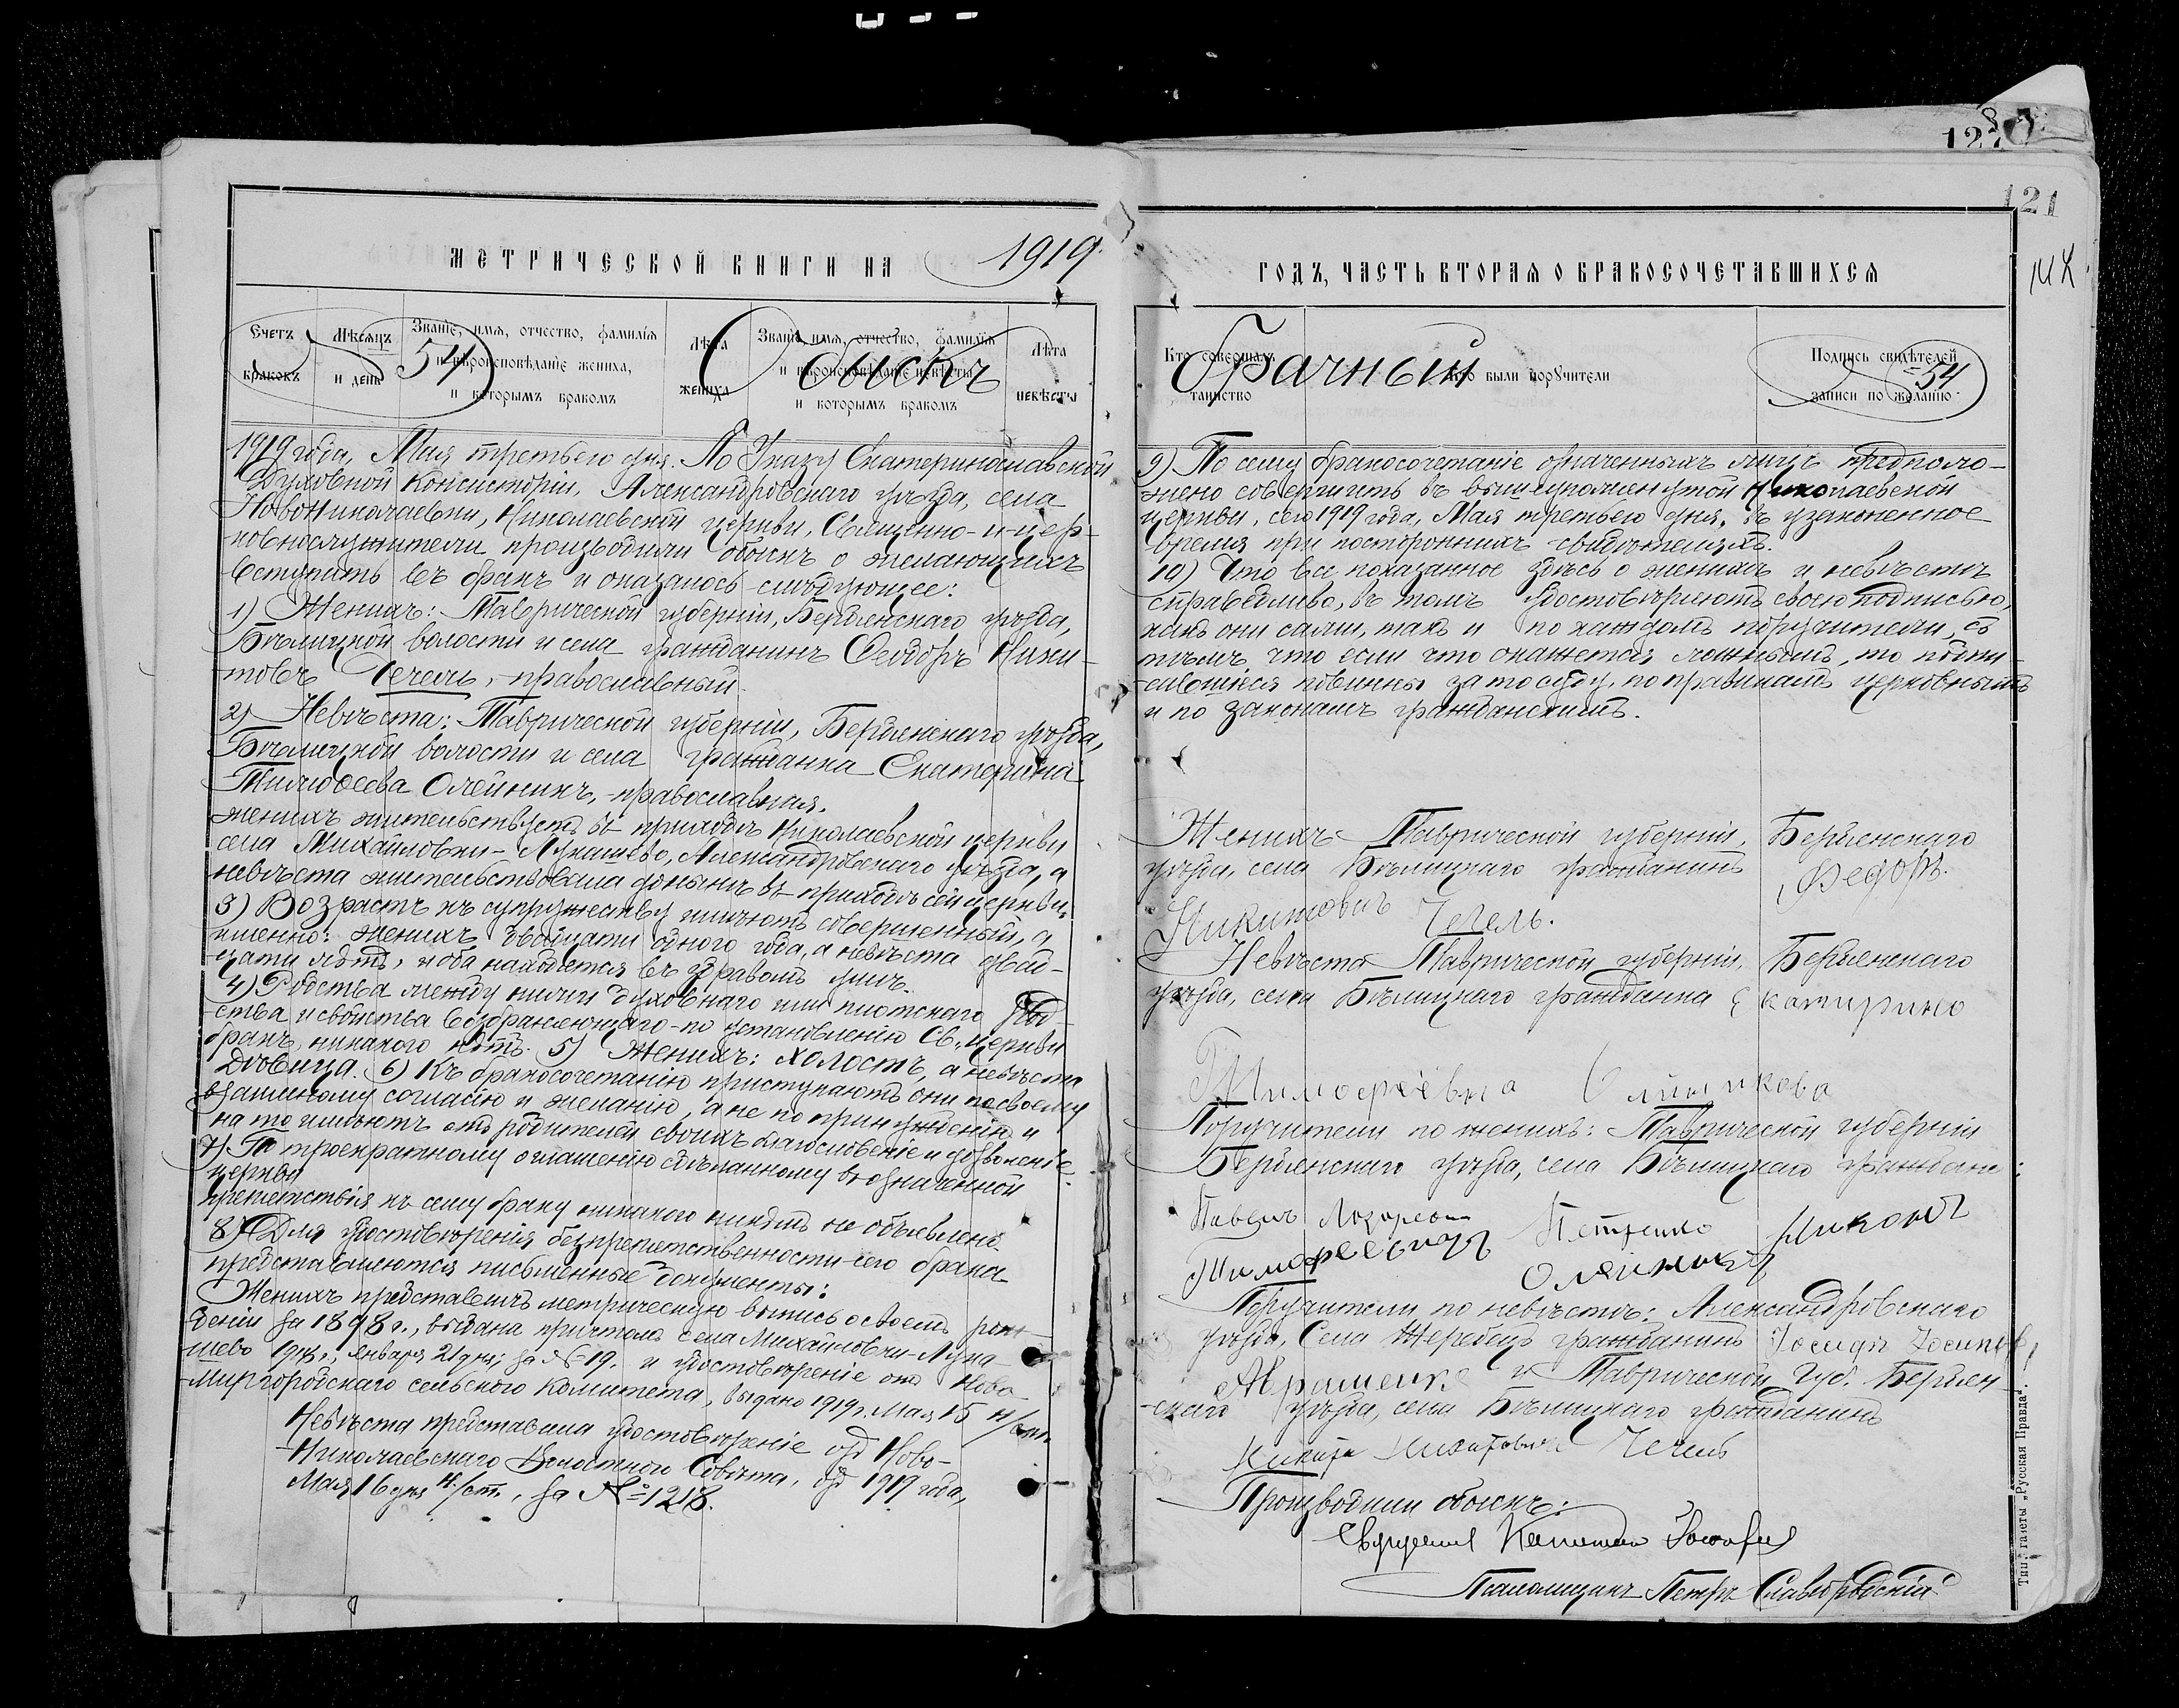 128
121
МЕТРИЧЕСКОЙ КНИГИ НА 1919
ГОДЪ, ЧАСТЬ ВТОРАЯ О БРАКОСОЧЕТАВШИХСЯ
Счетъ браковъ
Мѣсяцъ и день
Званіе, имя, отчество, фамилія и вѣроисповѣданіе жениха, и которымъ бракомъ
Лѣта жениха
Званіе, имя, отчество, фамилія и вѣроисповѣданіе невѣсты и которымъ бракомъ
Лѣта невѣсты
Кто совершалъ таинство
Кто были поручители
Подпись свидѣтелей записи по желанію
54 Обыскъ
Брачный 54
1919 года, Мая третьего дня. По Указу Екатеринославской
Духовной Консисторіи, Александровскаго уѣзда, села
Новониколаевки, Николаевской церкви, Священно-и-цер-
ковнослужители производили обыскъ о желающихъ
вступить въ бракъ и оказалось слѣдующее:
1) Женихъ: Таврической губерніи, Бердянскаго уѣзда,
Бѣлицкой волости и села гражданинъ Ѳеодоръ Ники-
товъ Чечель, православный.
2) Невѣста: Таврической губерніи, Бердянскаго уѣзда,
Бѣлицкой волости и села гражданка Екатерина
Тимоѳеева Олейникъ, православная.
женихъ жительствуетъ въ приходѣ Николаевской церкви
села Михайловки-Лукашево, Александровскаго уѣзда, а
невѣста жительствовала донынѣ въ приходѣ сей церкви,
3) Возрастъ къ супружеству имѣютъ совершенный, а
именно: женихъ двадцати одного года, а невѣста двад-
цати лѣтъ, и оба находятся въ здравомъ умѣ.
4) Родства между ними духовнаго или плотскаго род-
ства и свойства возбраняющаго по установленію Св. церкви
бракъ, никакого нѣтъ. 5) Женихъ: холостъ, а невѣста
дѣвица. 6) Къ бракосочетанію приступаютъ они по своему
взаимному согласію и желанію, а не по принужденію и
на то имѣютъ отъ родителей своихъ благословеніе и дозволеніе.
7) По троекратному оглашенію сдѣланному въ означенной
церкви
препятствія къ сему браку никакого никѣмъ не объявлено.
8) Для удостовѣренія безпрепятственности сего брака
представляются письменные документы:
Женихъ представилъ метрическую выпись о своемъ рож-
деніи за 1898 г., выдана причтомъ села Михайловки-Лука-
шево января 21 дня, за № 19. и удостовѣреніе отъ Ново-
Миргородскаго сельского Комитета, выдано 1919 г. Мая 15 н/ст.
Невѣста представила удостовѣреніе отъ Ново-
Николаевскаго Волостного Совѣта, отъ 1919 года,
Мая 16 дня н./ст., за № 1218.
9) По сему бракосочетаніе означенныхъ лицъ предполо-
жено совершить въ вышеупомянутой Николаевской
церкви, сего 1919 года, Мая третьего дня, въ узаконенное
время при постороннихъ свидѣтеляхъ.
10) Что все показанное здѣсь о женихѣ и невѣстѣ
справедливо, въ томъ удостовѣряютъ своею подписью,
какъ они сами, такъ и по каждомъ поручители, съ
тѣмъ, что если что окажется ложнымъ, то подпи-
савшіеся повинны за то суду, по правиламъ церковнымъ
и по законамъ гражданскимъ.
Женихъ Таврической губерніи, Бердянскаго
уѣзда, села Бѣлицкаго гражданинъ Федоръ.
Никитовичъ Чечель.
Невѣста Таврической губерніи, Бердянскаго
уѣзда, села Бѣлицкаго гражданка Екатирино
Тимофеевна Олийникова
Поручители по женихѣ: Таврической губерніи
Бердянскаго уѣзда, села Бѣлицкаго граждане:
Павелъ Петренко Никонъ
Тимофеевичъ Олейникъ
Поручители по невѣстѣ: Александровскаго
уѣзда, Села Жеребецъ гражданинъ
и Таврической Губ. Бердян-
скаго уѣзда, села Бѣлицкаго гражданинъ
Никита Никитовичъ Чечель
Производили обыскъ:
Псаломщикъ Петръ
Тип. газеты „Русская Правда".